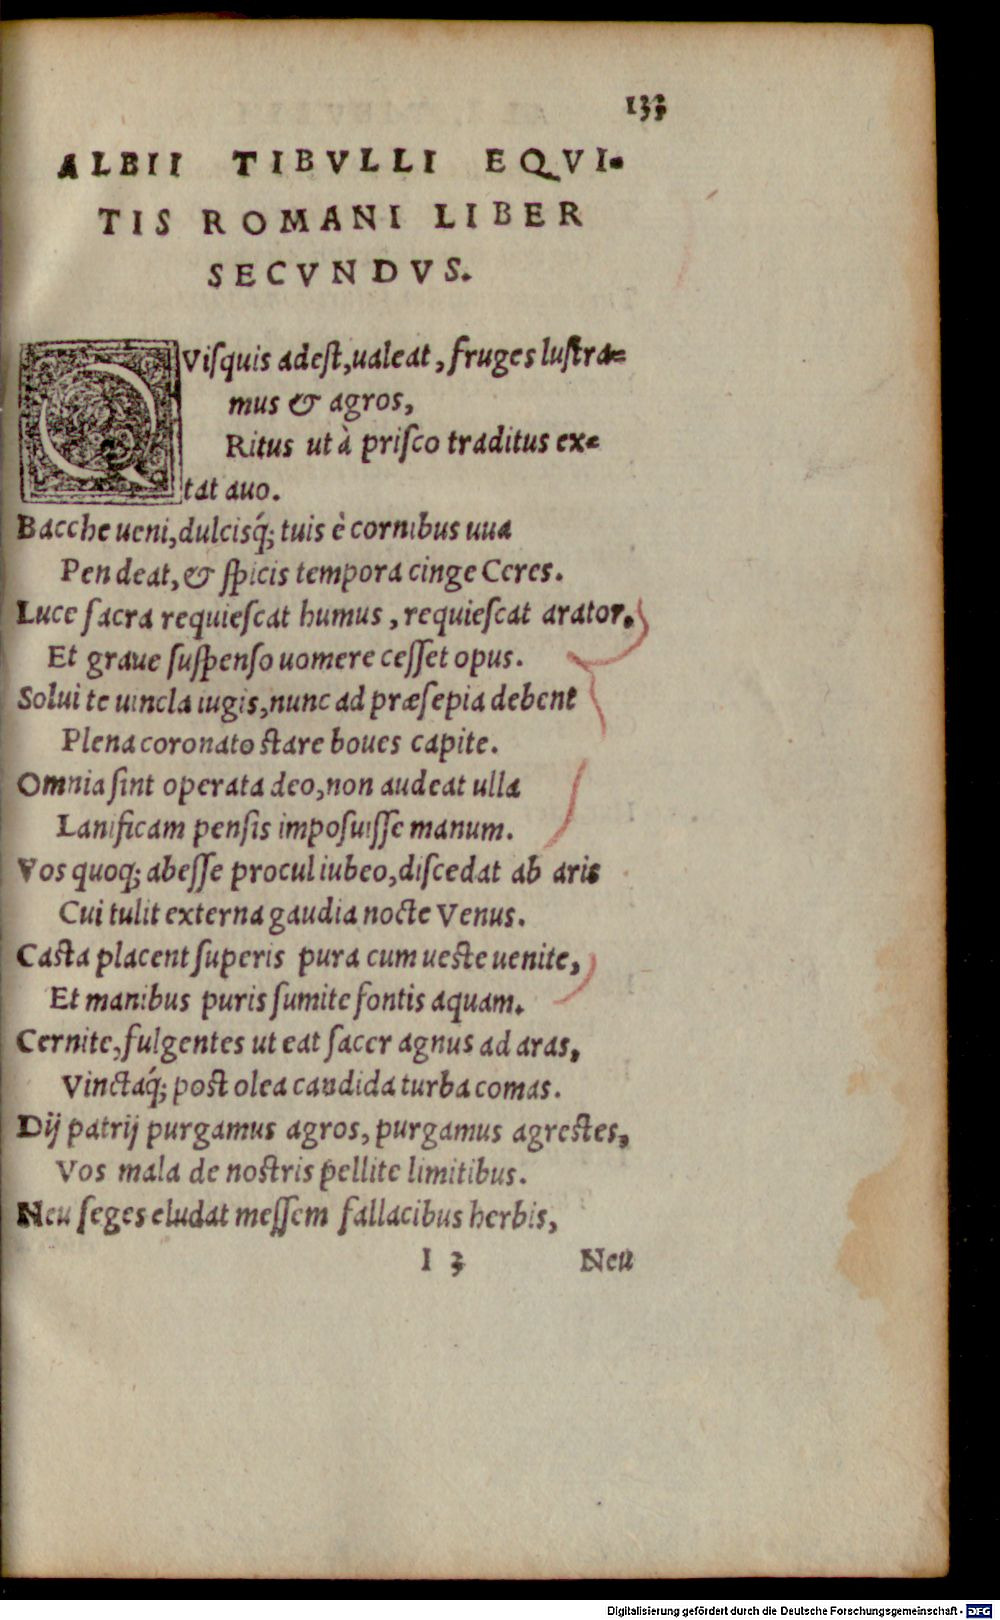 133
ALBII TIBVLLI EQVI-
TIS ROMANI LIBER
SECVNDVS.
QViſquis adeſt, ualeat, fruges luſtra-
mus & agros,
Ritus ut à priſco traditus ex-
tat auo.
Bacche ueni, dulcisq́; tuis è cornibus uua
Pendeat, & ſpicis tempora cinge Ceres.
Luce ſacra requieſcat humus, requieſcat arator,
Et graue ſuſpenſo uomere ceſſet opus.
Soluite uincla iugis, nunc ad præſepia debent
Plena coronato ſtare boues capite.
Omnia ſint operata deo, non audeat ulla
Lanificam penſis impoſuiſſe manum.
Vos quoq; abeſſe procul iubeo, diſcedat ab aris
Cui tulit externa gaudia nocte Venus.
Caſta placent ſuperis pura cum ueſte uenite,
Et manibus puris ſumite fontis aquam.
Cernite, fulgentes ut eat ſacer agnus ad aras,
Vinctaq́; poſt olea candida turba comas.
Dij patrij purgamus agros, purgamus agreſtes,
Vos mala de noſtris pellite limitibus.
Neu ſeges eludat meſſem fallacibus herbis,
I 3 Neu
Digitalisierung gefördert durch die Deutsche Forschungsgemeinschaft - DFG